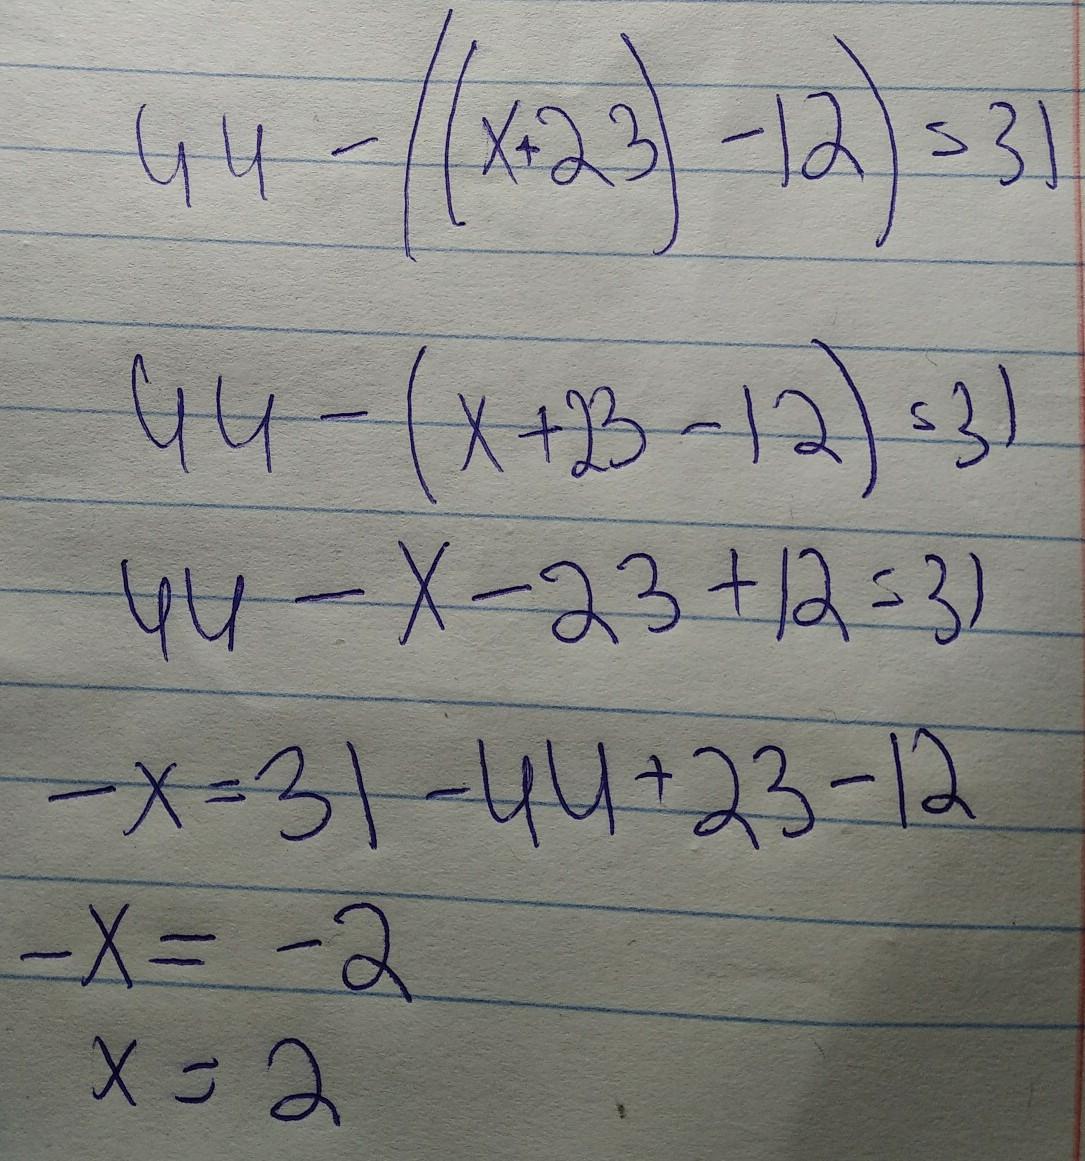 44 - ((x+23) - 12) = 31
44 - (x + 23 - 12) = 31
44 - x - 23 + 12 = 31
-x = 31 - 44 + 23 - 12
-x = -2
x = 2